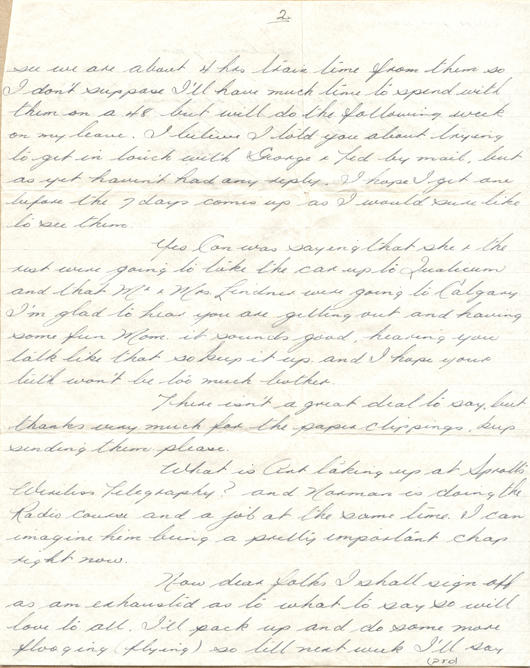 2.
see we are about 4 hrs train time from them so
I dont suppose I'll have much time to spend with
them on a 48 but will do the following week
on my leave. I believe I told you about trying
to get in touch with George & Ted by mail, but
as yet haven't had any reply. I hope I get one
before the 7 days comes up as I would sure like
to see them.
Yes Con was saying that she & the
rest were going to take the car up to Qualicum
and that Mr & Mrs. Lindner were going to Calgary
I'm glad to hear you are getting out and having
some fun Mom. it sounds good, hearing you
talk like that so keep it up. and I hope your
teeth won't be too much bother.
There isn't a great deal to say, but
thanks very much for the paper clippings, keep
sending them please.
What is Art taking up at Sprotts
Wireless Telegraphy? and Norman is doing the
Radio course and a job at the same time. I can
imagine him being a pretty important chap
right now.
Now dear folks I shall sign off
as am exhausted as to what to say so will
love to all. I'll pack up and do some more
flooging (flying) so till next week I'll say
(PTO)